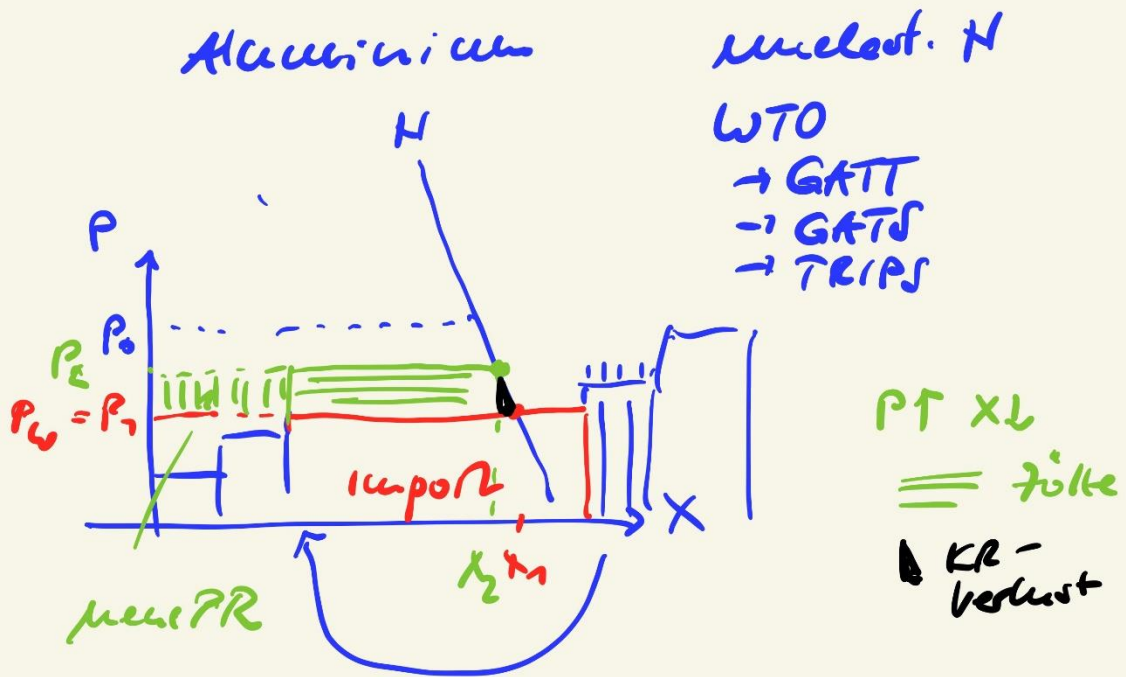 Aluminium
unelast. N
WTO
→ GATT
→ GATS
→ TRIPS
N
P
P₀
P₂
Pw = P₁
Import
X
x₂ x₁
neue PR
P↑ X↓
Zölle
KR-
Verlust